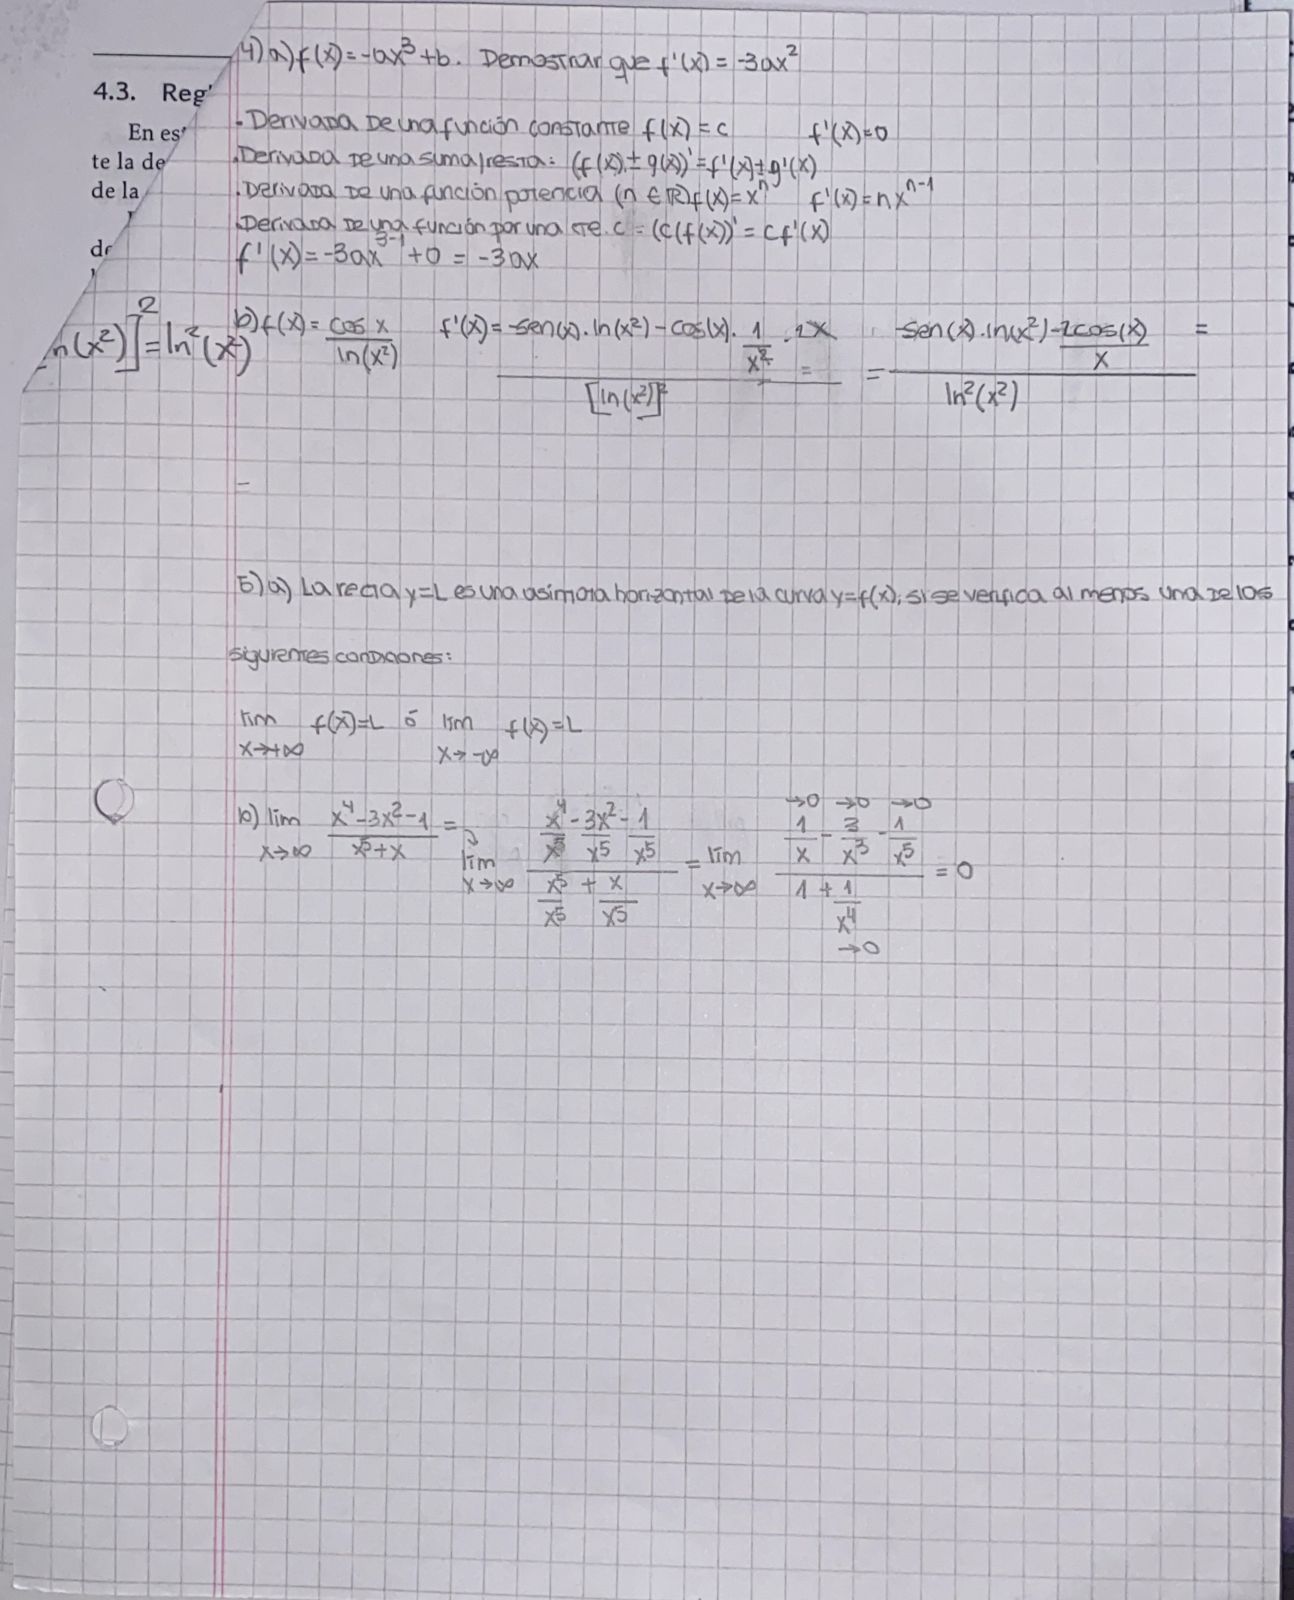 4) a) f(x) = -ax³ + b. Demostrar que f'(x) = -3ax²
4.3. Reg
· Derivada de una función constante f(x) = c f'(x) = 0
En es
· Derivada de una suma/resta: (f(x) ± g(x))' = f'(x) ± g'(x)
te la de
· Derivada de una función potencia (n ∈ ℝ) f(x) = xⁿ f'(x) = nxⁿ⁻¹
de la
· Derivada de una función por una cte. c = (c(f(x))' = cf'(x)
f'(x) = -3ax³⁻¹ + 0 = -3ax
n(x²)]² = ln²(x²)
b) f(x) = cos x / ln(x²) f'(x) = -sen(x) . ln(x²) - cos(x) . 1/x² . 2x / [ln(x²)]² = = -sen(x) . ln(x²) - 2cos(x)/x / ln²(x²) =
=
5) a) La recta y = L es una asíntota horizontal de la curva y = f(x), si se verifica al menos una de los
siguientes condiciones:
lim x→+∞ f(x) = L ó lim x→-∞ f(x) = L
b) lim x→∞ x⁴ - 3x² - 1 / x⁵ + x = lim x→∞ x⁴/x⁵ - 3x²/x⁵ - 1/x⁵ / x⁵/x⁵ + x/x⁵ = lim x→∞ 1/x - 3/x³ - 1/x⁵ / 1 + 1/x⁴ = 0
→0 →0 →0
→0